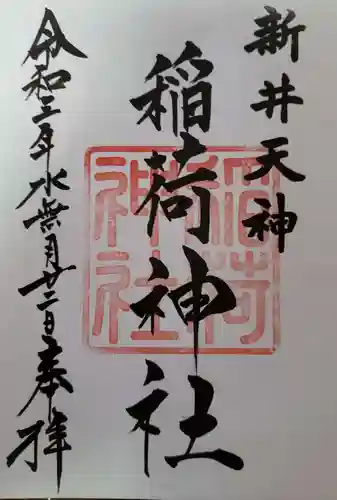 新井天神
稲荷神社
令和三年水無月廿二日奉拝
稲荷
神社